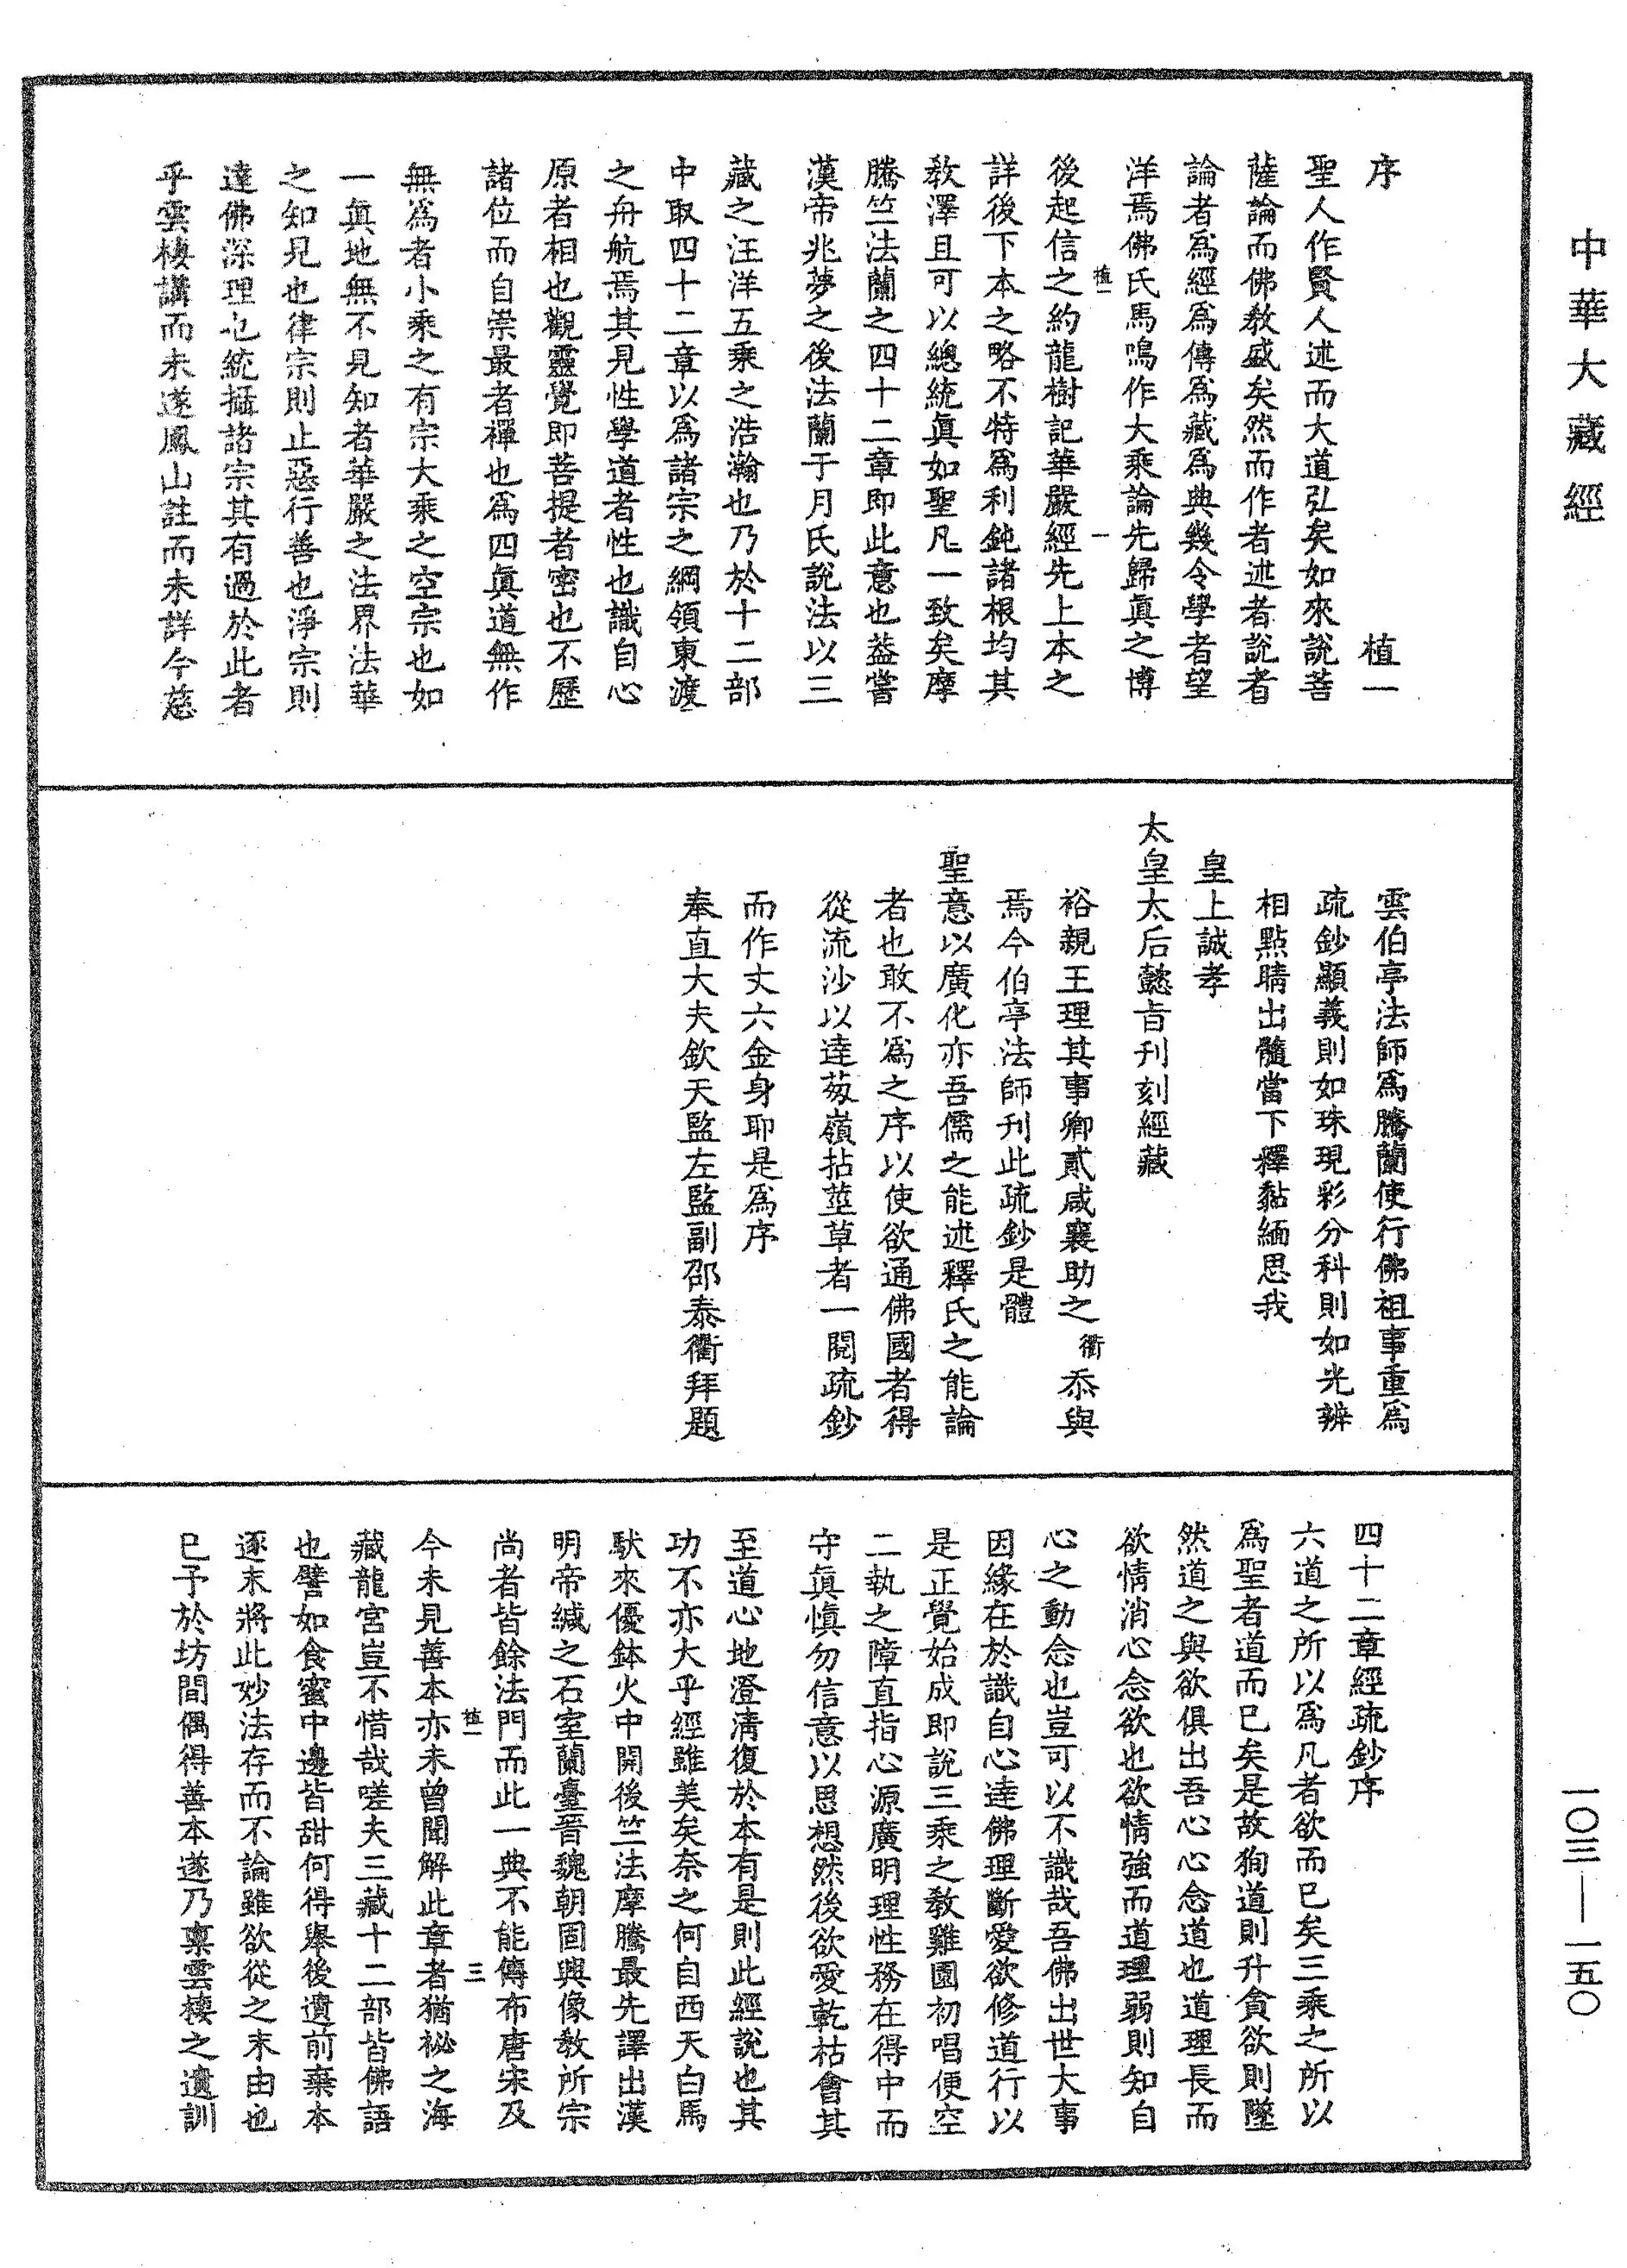 中華大藏經
序　　　　　　　　　　植一
聖人作賢人述而大道弘矣如來說菩
薩論而佛教盛矣然而作者述者說者
論者爲經爲傳爲藏爲典幾令學者望
洋焉佛氏馬鳴作大乘論先歸眞之博
植一　一
後起信之約龍樹記華嚴經先上本之
詳後下本之略不特爲利鈍諸根均其
教澤且可以總統眞如聖凡一致矣摩
騰竺法蘭之四十二章即此意也葢嘗
漢帝兆夢之後法蘭于月氏說法以三
藏之汪洋五乘之浩瀚也乃於十二部
中取四十二章以爲諸宗之綱領東渡
之舟航焉其見性學道者性也識自心
原者相也觀靈覺即菩提者密也不歷
諸位而自崇最者禪也爲四眞道無作
無爲者小乘之有宗大乘之空宗也如
一眞地無不見知者華嚴之法界法華
之知見也律宗則止惡行善也淨宗則
達佛深理也統攝諸宗其有過於此者
乎雲棲講而未遂鳳山註而未詳今慈
雲伯亭法師爲騰蘭使行佛祖事重爲
疏鈔顯義則如珠現彩分科則如光辨
相點睛出髓當下釋黏緬思我
皇上誠孝
太皇太后懿旨刊刻經藏
裕親王理其事卿貳咸襄助之衢忝與
焉今伯亭法師刊此疏鈔是體
聖意以廣化亦吾儒之能述釋氏之能論
者也敢不爲之序以使欲通佛國者得
從流沙以達葱嶺拈莖草者一閱疏鈔
而作丈六金身耶是爲序
奉直大夫欽天監左監副邵泰衢拜題
四十二章經疏鈔序
六道之所以爲凡者欲而已矣三乘之所以
爲聖者道而已矣是故狥道則升貪欲則墜
然道之與欲俱出吾心心念道也道理長而
欲情消心念欲也欲情強而道理弱則知自
心之動念也豈可以不識哉吾佛出世大事
因緣在於識自心達佛理斷愛欲修道行以
是正覺始成即說三乘之教雞園初唱便空
二執之障直指心源廣明理性務在得中而
守眞愼勿信意以思想然後欲愛乾枯會其
至道心地澄淸復於本有是則此經說也其
功不亦大乎經雖美矣奈之何自西天白馬
馱來優鉢火中開後竺法摩騰最先譯出漢
明帝緘之石室蘭臺晉魏朝固興像教所宗
尚者皆餘法門而此一典不能傳布唐宋及
植一　三
今未見善本亦未曾聞解此章者猶祕之海
藏龍宮豈不惜哉嗟夫三藏十二部皆佛語
也譬如食蜜中邊皆甜何得舉後遺前棄本
逐末將此妙法存而不論雖欲從之末由也
已予於坊間偶得善本遂乃稟雲棲之遺訓
一〇三—一五〇